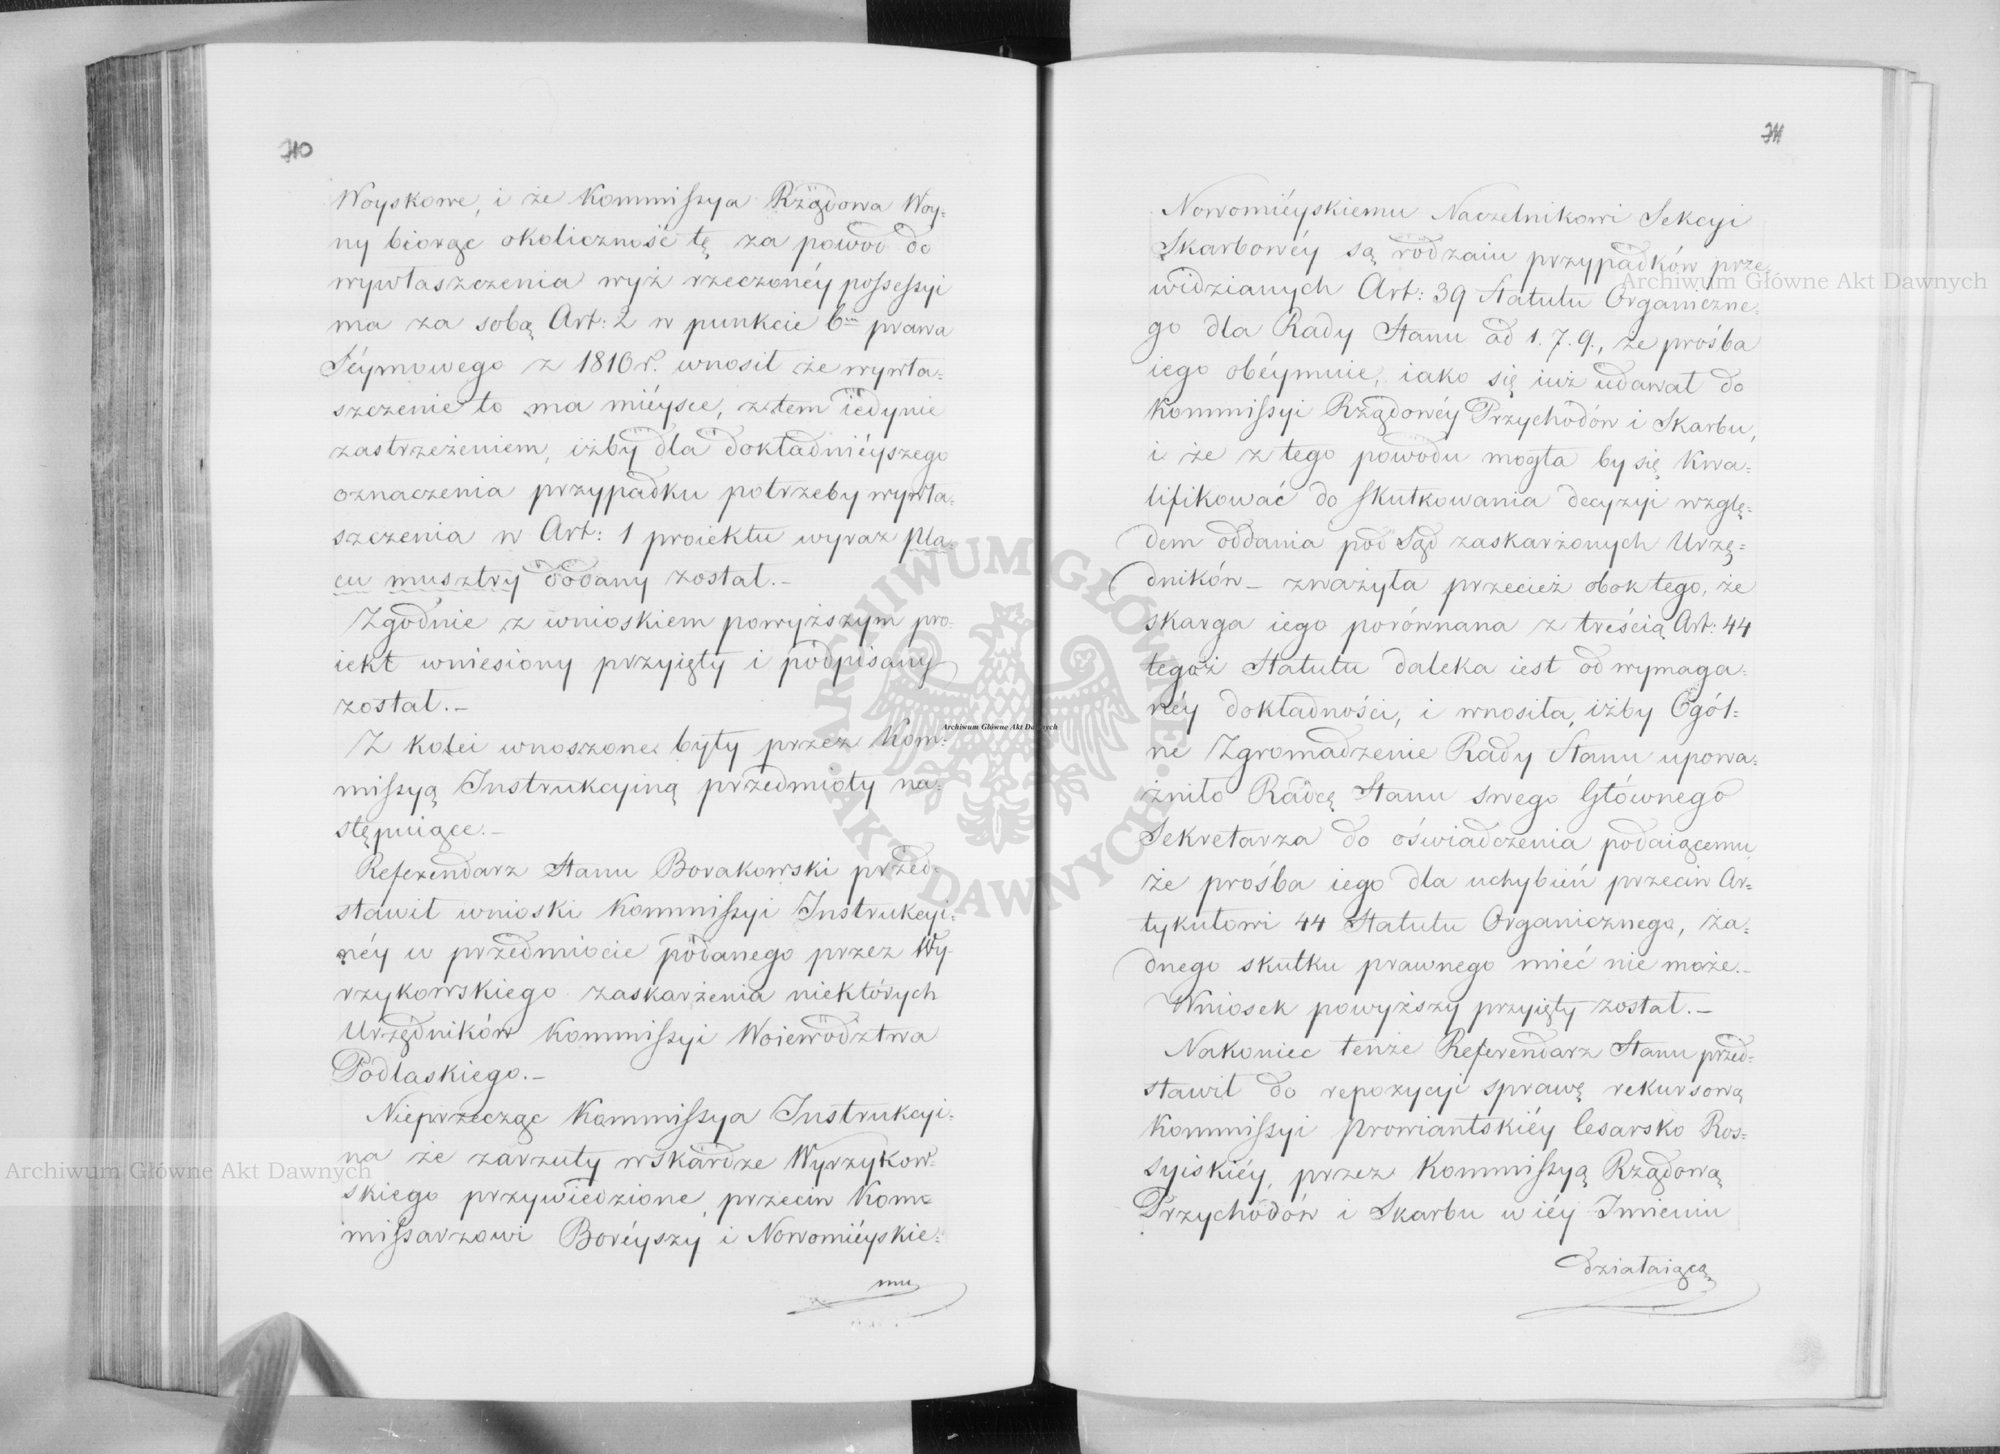 710
Woyskowe, i że Kommissya Rządowa Woy=
ny biorąc okoliczność tę za powod do
wywłaszczenia wyż rzeczonéy possessyi
ma za sobą Art: 2 w punkcie 6m prawa
Séymowego z 1810 r. wnosił że wywła=
szczenie to ma miéysce, z tem iedynie
zastrzeżeniem, iżby dla dokładniéyszego
oznaczenia przypadku potrzeby wywła=
szczenia w Art: 1 proiektu wyraz pla=
cu musztry dodany został.–
Zgodnie z wnioskiem powyższym pro=
iekt wniesiony przyięty i podpisany
został.–
Z kolei wnoszone były przez Kom=
missyą Instrukcyiną przedmioty na=
stępuiące.–
Referendarz Stanu Borakowski przed=
stawił wnioski Kommissyi Instrukcyi=
néy w przedmiocie podanego przez Wy
rzykowskiego zaskarżenia niektórych
Urzędników Kommissyi Woiewództwa
Podlaskiego.–
Nieprzecząc Kommissya Instrukcyi=
na że zarzuty w skardze Wyrzykow=
skiego przywiedzione, przeciw Kom=
missarzowi Boréyszy i Nowomiéyskie=
mu
711
Nowomiéyskiemu Naczelnikowi Sekcyi
Skarbowéy są rodzaiu przypadków prze
widzianych Art: 39 Statutu Organiczne=
go dla Rady Stanu ad 1. 7. 9., że prośba
iego obéymuie, iako się iuż udawał do
Kommissyi Rządowéy Przychodów i Skarbu,
i że z tego powodu mogła by się kwa=
lifikować do skutkowania decyzyi wzglę=
dem oddania pod Sąd zaskarżonych Urzę=
dników – zważyła przecież obok tego, że
skarga iego porównana z treścią Art: 44
tegoż Statutu daleka iest od wymaga=
néy dokładności, i wnosiła, iżby Ogól=
ne Zgromadzenie Rady Stanu upowa=
żniło Radcę Stanu swego Głównego
Sekretarza do oświadczenia podaiącemu
że prośba iego dla uchybień przeciw Ar=
tykułowi 44 Statutu Organicznego, ża=
dnego skutku prawnego mieć nie może.–
Wniosek powyższy przyięty został.–
Nakoniec tenże Referendarz Stanu przed=
stawił do repozycyi sprawę rekursową
Kommissyi Prowiantskiéy Cesarsko Ros=
syiskiéy, przez Kommissyą Rządową
Przychodów i Skarbu w iéy Imieniu
działaiącą
Archiwum Główne Akt Dawnych
Archiwum Główne Akt Dawnych
Archiwum Główne Akt Dawnych
ARCHIWUM GŁÓWNE
AKT DAWNYCH